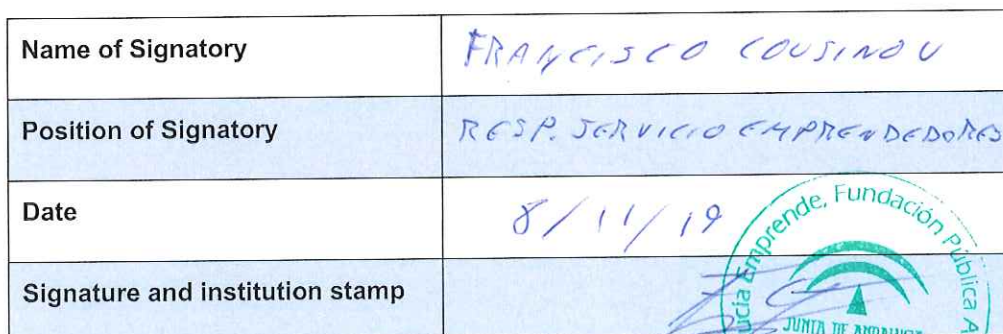 Name of Signatory FRANCISCO COUSINOU
Position of Signatory RESP. SERVICIO EMPRENDEDORES
Date 8/11/19
Signature and institution stamp
ucía Emprende, Fundación Pública A
JUNTA DE ANDALUCIA